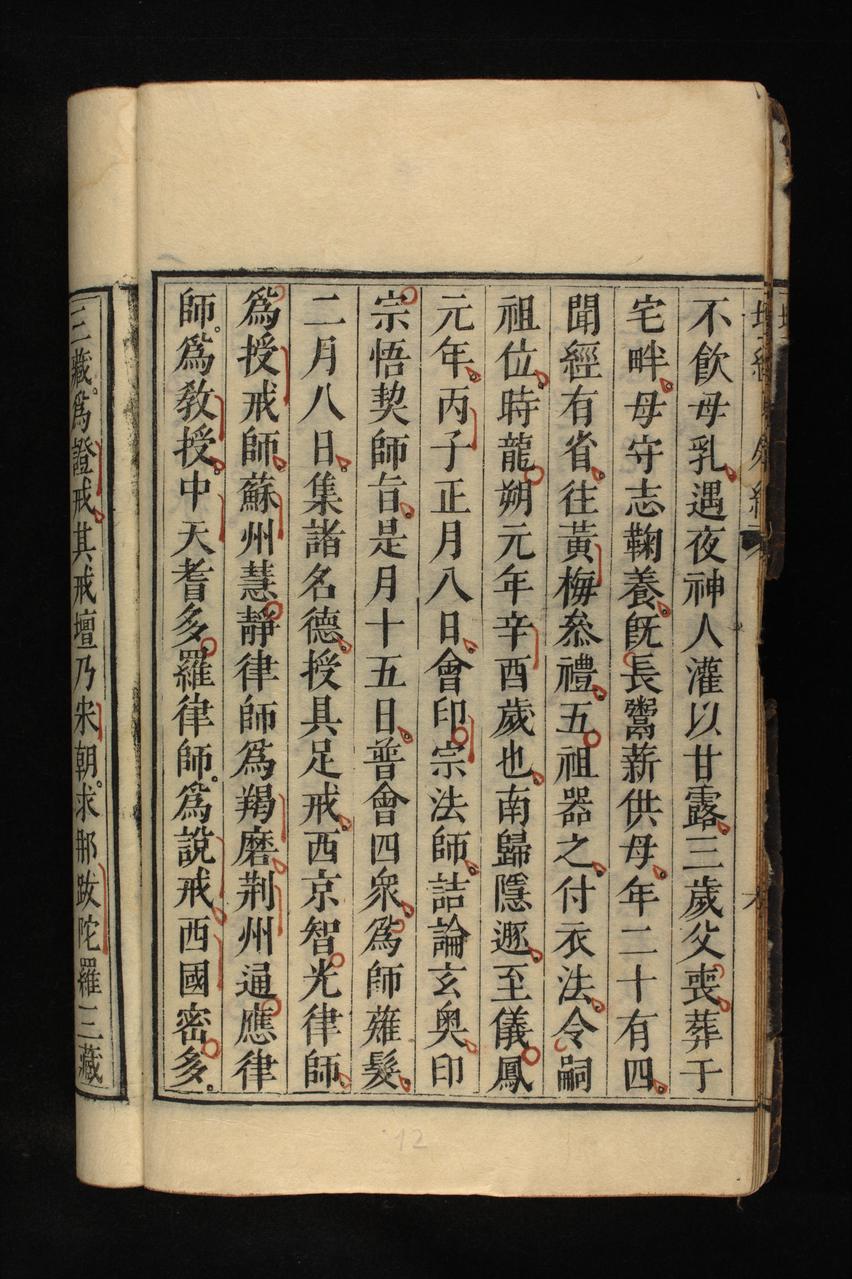 不飲母乳遇夜神人灌以甘露三歲父喪葬于
宅畔母守志鞠養旣長鬻薪供母年二十有四
聞經有省往黃梅叅禮五祖器之付衣法令嗣
祖位時龍朔元年辛酉歲也南歸隱遯至儀鳳
元年丙子正月八日會印宗法師詰論玄奧印
宗悟契師旨是月十五日普會四衆爲師薙髮
二月八日集諸名德授具足戒西京智光律師
爲授戒師蘇州慧靜律師爲羯磨荆州通應律
師爲敎授中天耆多羅律師爲說戒西國密多
三藏爲證戒其戒壇乃宋朝求那跋陀羅三藏
12